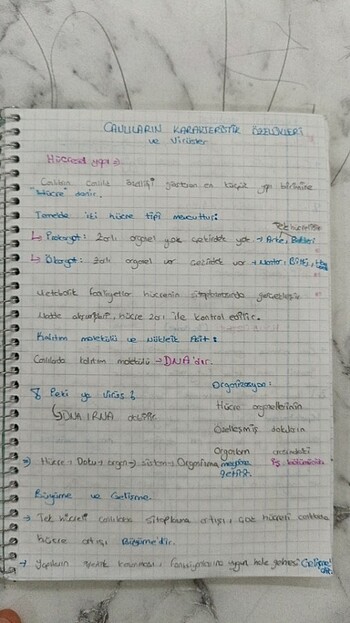 CANLILARIN KARAKTERİSTİK ÖZELLİKLERİ
ve Virüsler
Hücresel yapı :
Canlının canlılık özelliği gösteren en küçük yapı birimine
"Hücre" denir.
Temelde iki hücre tipi mevcuttur:
Tek hücrelidir
↳ Prokaryot: Zarlı organel yok çekirdek yok → Arke, Bakteri
↳ Ökaryot: Zarlı organel var çekirdek var → Mantar, Bitki,
Metabolik faaliyetler hücrenin sitoplazmasında gerçekleşir
Madde alışverişleri, hücre zarı ile kontrol edilir.
Kalıtım molekülü ve Nükleik Asit :
Canlılarda kalıtım molekülü → DNA'dır.
Peki ya Virüs ?
↳ DNA / RNA olabilir
Organizasyon :
Hücre organellerinin
Özelleşmiş dokuların
Organların arasındaki
iş bölümüdür
→ Hücre → Doku → organ → sistem → Organizma meydana
getirir.
Büyüme ve Gelişme
→ Tek hücreli canlılarda sitoplazma artışı, çok hücreli canlılarda
hücre artışı Büyüme'dir.
→ Yapıların kazanması, fonksiyonlarına uygun hale gelmesi Gelişme